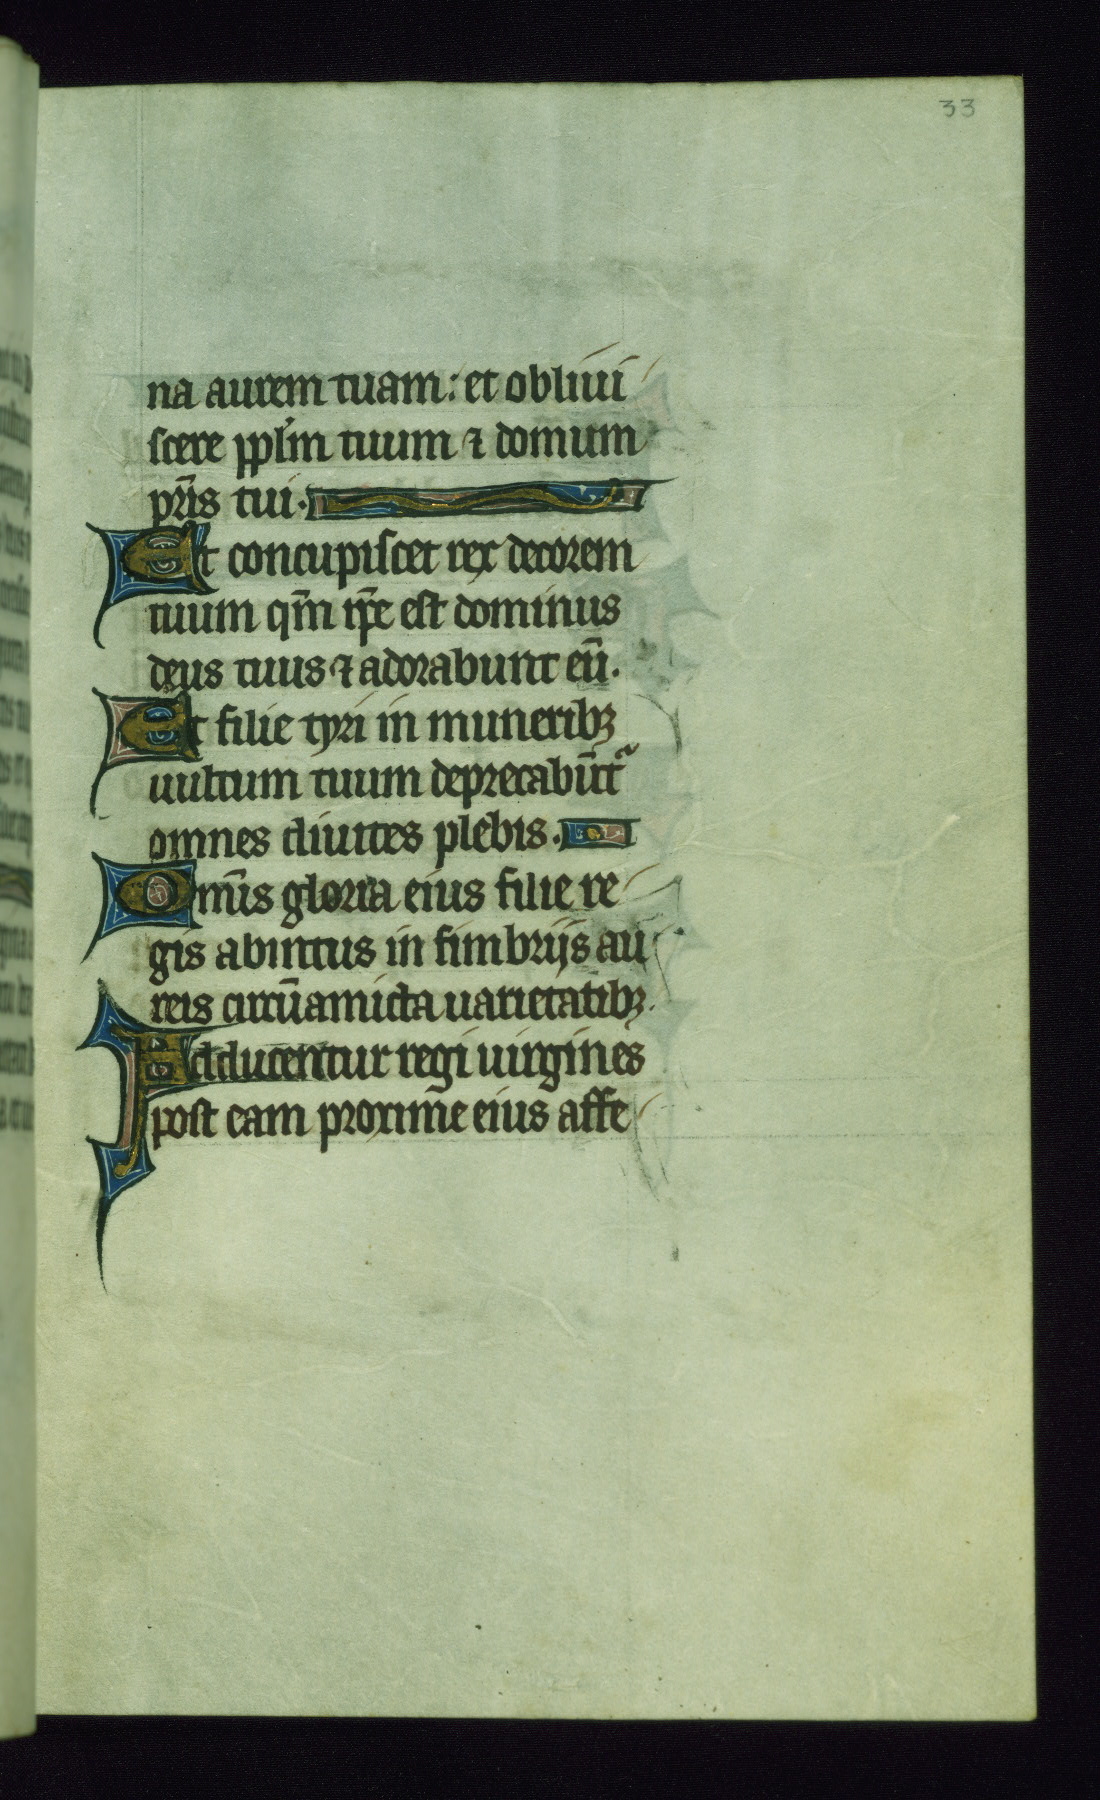 33
na aurem tuam: et obliui
scere pplm̄ tuum ⁊ domum
pr̄is tui.
Et concupiscet rex decorem
tuum qm̄ ip̄e est dominus
deus tuus ⁊ adorabunt eū.
Et filie tyri in muneribꝫ
uultum tuum deprecabūt᷑
omnes diuites plebis.
Omīs gloria eius filie re
gis abintus in fimbrijs au
reis circūamicta uarietatibꝫ.
Adducentur regi uirgines
post eam proxime eius affe